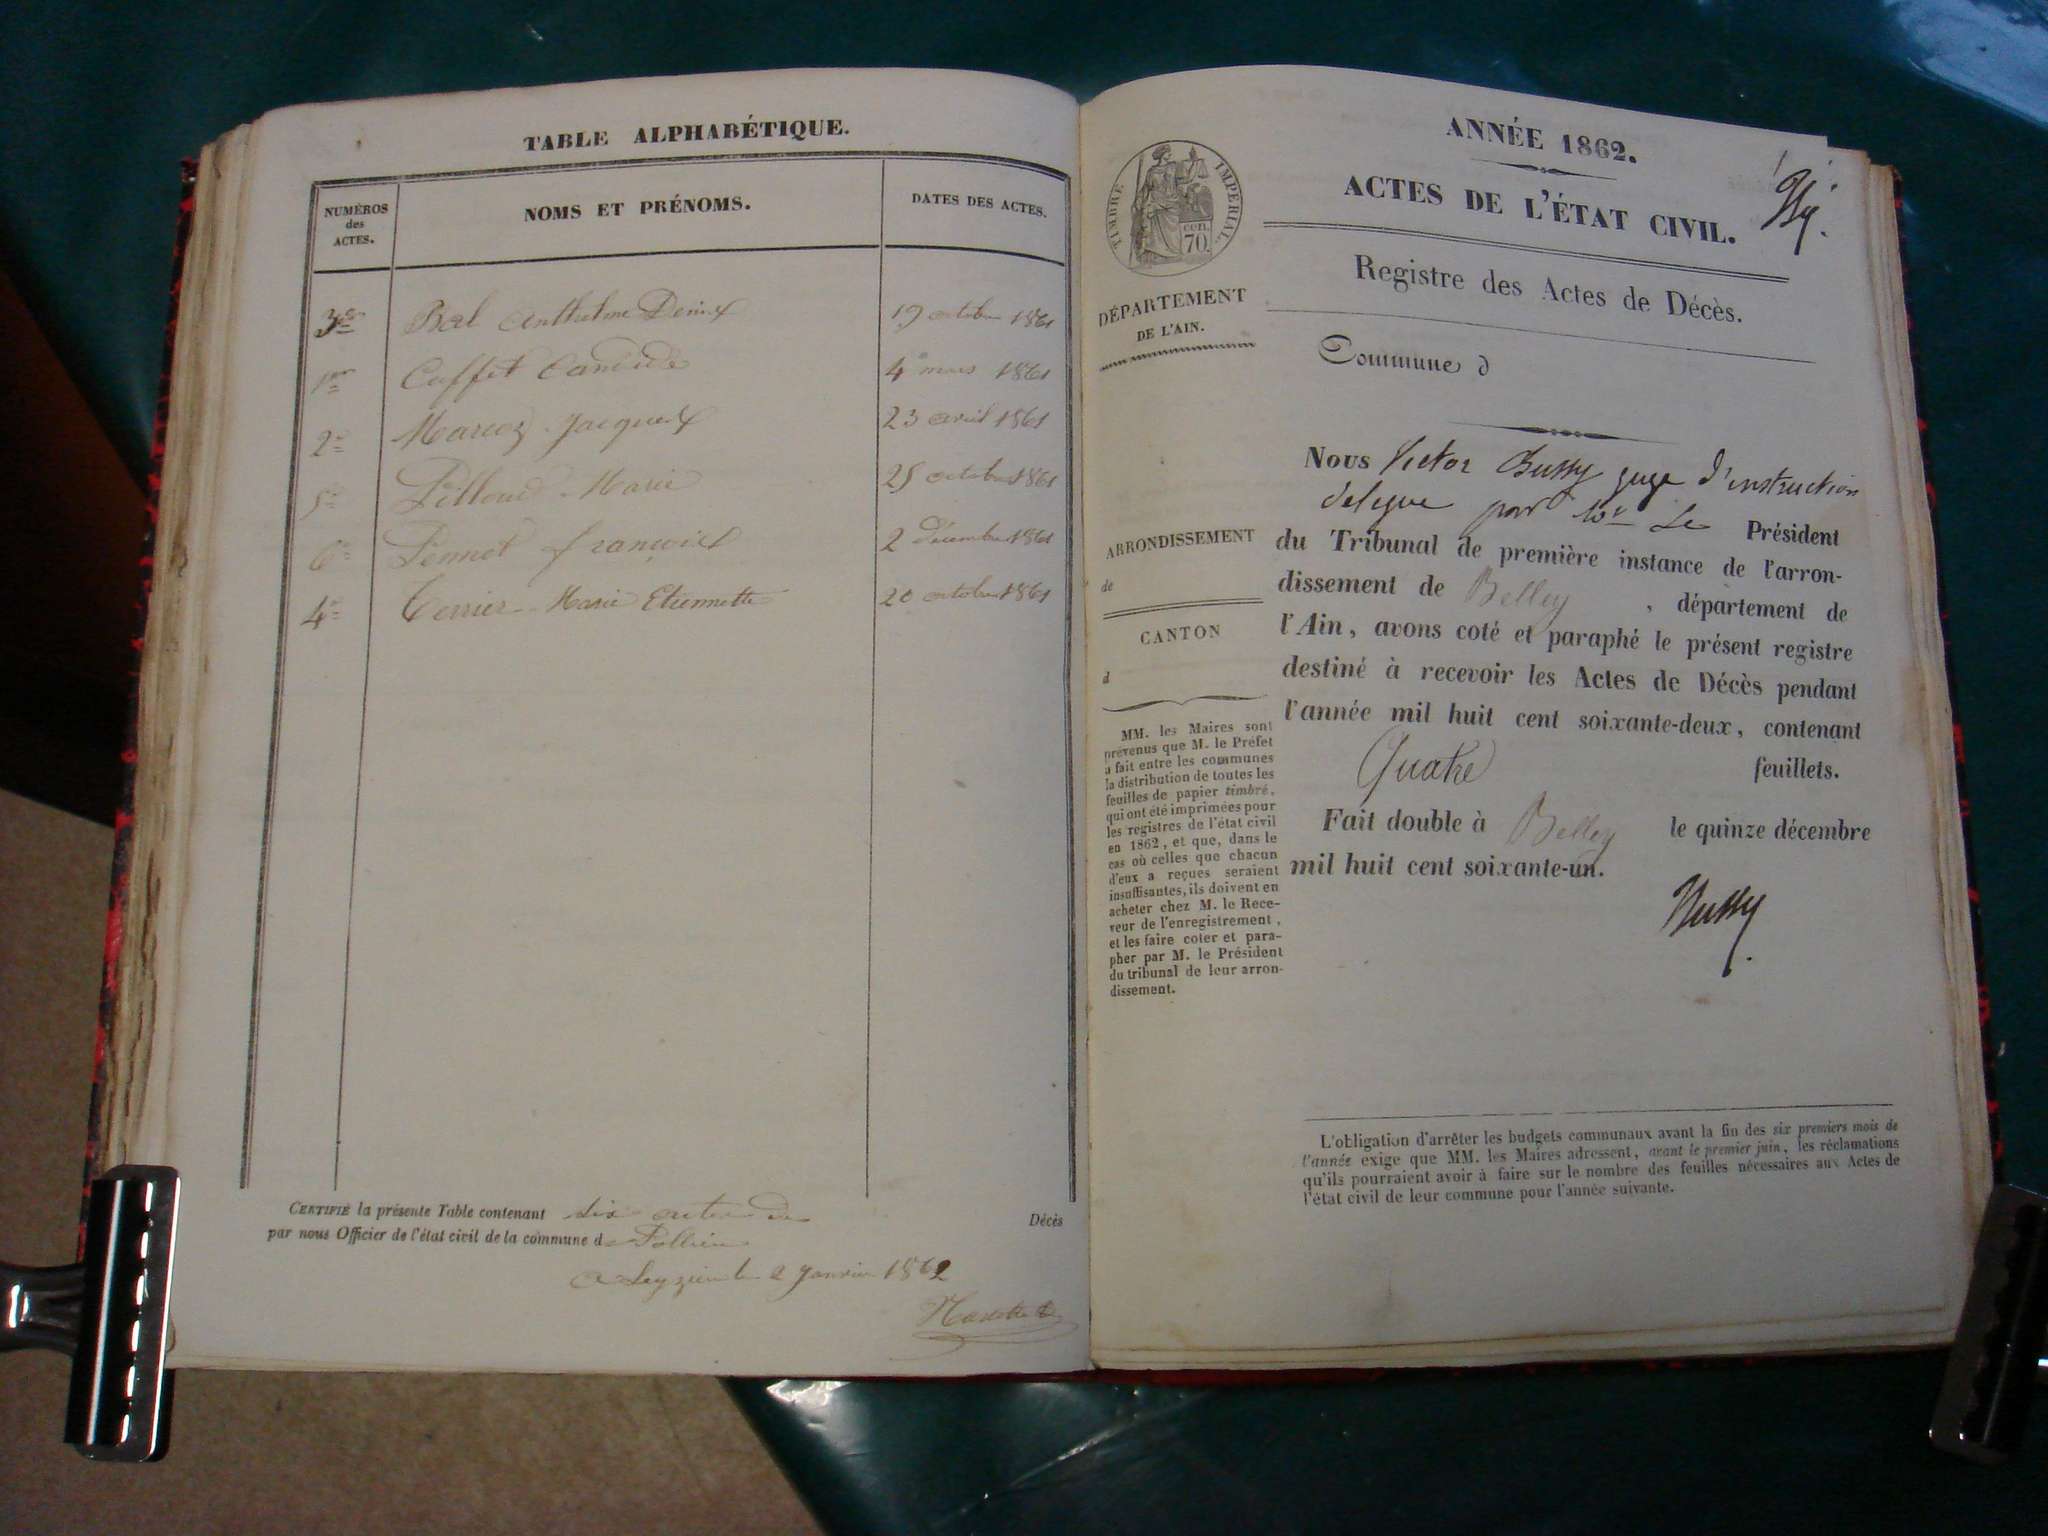 TABLE ALPHABÉTIQUE.
NUMÉROS
des
ACTES.
NOMS ET PRÉNOMS.
DATES DES ACTES.
3e Bal Anthelme Denix 19 octobre 1861
1er Caffet Candide 4 mars 1861
2e Marcoz Jacques 23 avril 1861
5e Pilloud Marie 25 octobre 1861
6e Pennet françois 2 Décembre 1861
4e Terrier Marie Etiennette 20 octobre 1861
CERTIFIÉ la présente Table contenant six actes de Décès
par nous Officier de l'état civil de la commune de Pollieu
a Leyzieu le 2 Janvier 1862
ANNÉE 1862.
ACTES DE L'ÉTAT CIVIL.
Registre des Actes de Décès.
TIMBRE IMPÉRIAL.
cen.
70.
DÉPARTEMENT
DE L'AIN.
Commune d
ARRONDISSEMENT
de
CANTON
d
MM. les Maires sont
prévenus que M. le Préfet
a fait entre les communes
la distribution de toutes les
feuilles de papier timbré,
qui ont été imprimées pour
les registres de l'état civil
en 1862, et que, dans le
cas où celles que chacun
d'eux a reçues seraient
insuffisantes, ils doivent en
acheter chez M. le Rece-
veur de l'enregistrement,
et les faire coter et para-
pher par M. le Président
du tribunal de leur arron-
dissement.
Nous Victor Bussy juge d'instruction
delegue par Mr Le Président
du Tribunal de première instance de l'arron-
dissement de Belley , département de
l'Ain, avons coté et paraphé le présent registre
destiné à recevoir les Actes de Décès pendant
l'année mil huit cent soixante-deux, contenant
Quatre feuillets.
Fait double à Belley le quinze décembre
mil huit cent soixante-un.
Bussy
L'obligation d'arrêter les budgets communaux avant la fin des six premiers mois de
l'année exige que MM. les Maires adressent, avant le premier juin, les réclamations
qu'ils pourraient avoir à faire sur le nombre des feuilles nécessaires aux Actes de
l'état civil de leur commune pour l'année suivante.